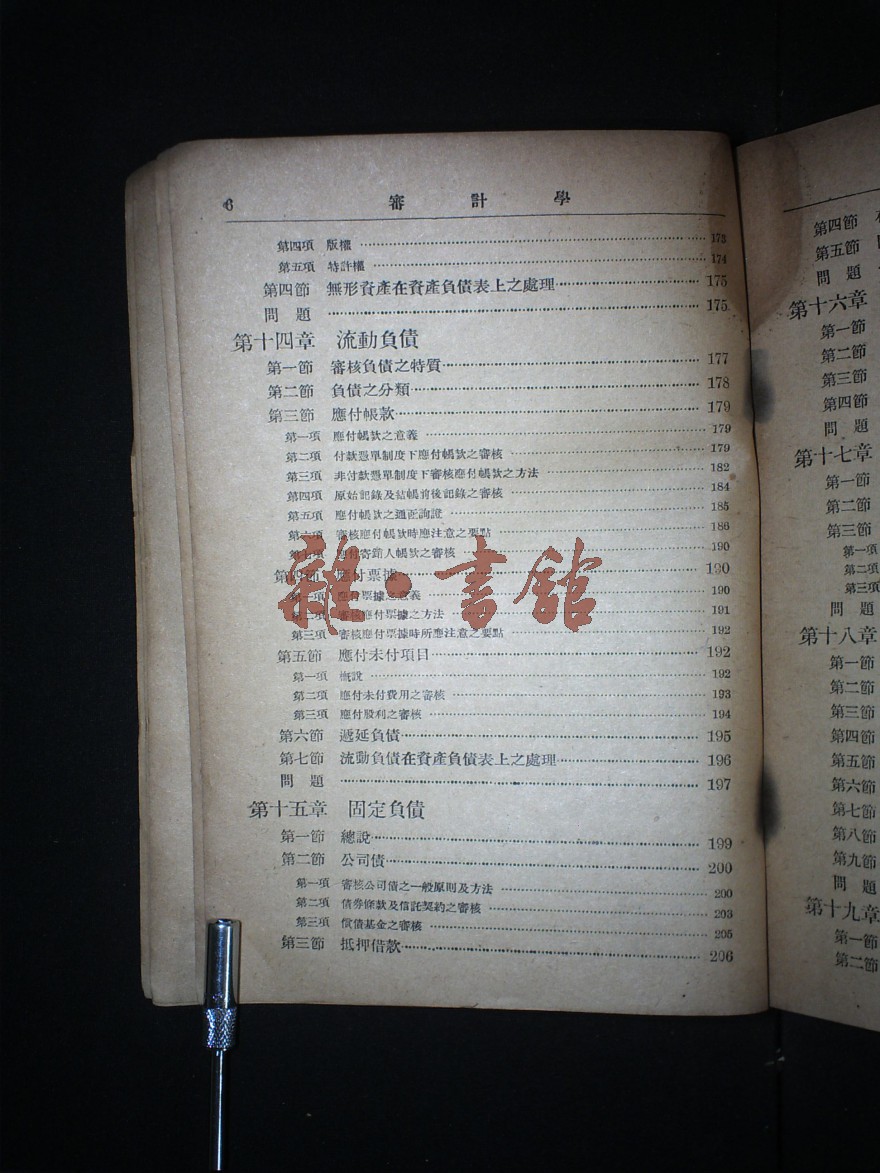 6 審計學
第四項 版權 173
第五項 特許權 174
第四節 無形資產在資產負債表上之處理 175
問題 175
第十四章 流動負債
第一節 審核負債之特質 177
第二節 負債之分類 178
第三節 應付帳款 179
第一項 應付帳款之意義 179
第二項 付款憑單制度下應付帳款之審核 179
第三項 非付款憑單制度下審核應付帳款之方法 182
第四項 原始記錄及結帳前後記錄之審核 184
第五項 應付帳款之通函詢證 185
第六項 審核應付帳款時應注意之要點 186
第七項 應付寄銷人帳款之審核 190
第四節 應付票據 190
第一項 應付票據之意義 190
第二項 審核應付票據之方法 191
第三項 審核應付票據時所應注意之要點 192
第五節 應付未付項目 192
第一項 概說 192
第二項 應付未付費用之審核 193
第三項 應付股利之審核 194
第六節 遞延負債 195
第七節 流動負債在資產負債表上之處理 196
問題 197
第十五章 固定負債
第一節 總說 199
第二節 公司債 200
第一項 審核公司債之一般原則及方法 200
第二項 債券條款及信託契約之審核 203
第三項 償債基金之審核 205
第三節 抵押借款 206
雜·書館
第四節
第五節
問題
第十六章
第一節
第二節
第三節
第四節
問題
第十七章
第一節
第二節
第三節
第一項
第二項
第三項
問題
第十八章
第一節
第二節
第三節
第四節
第五節
第六節
第七節
第八節
第九節
問題
第十九章
第一節
第二節